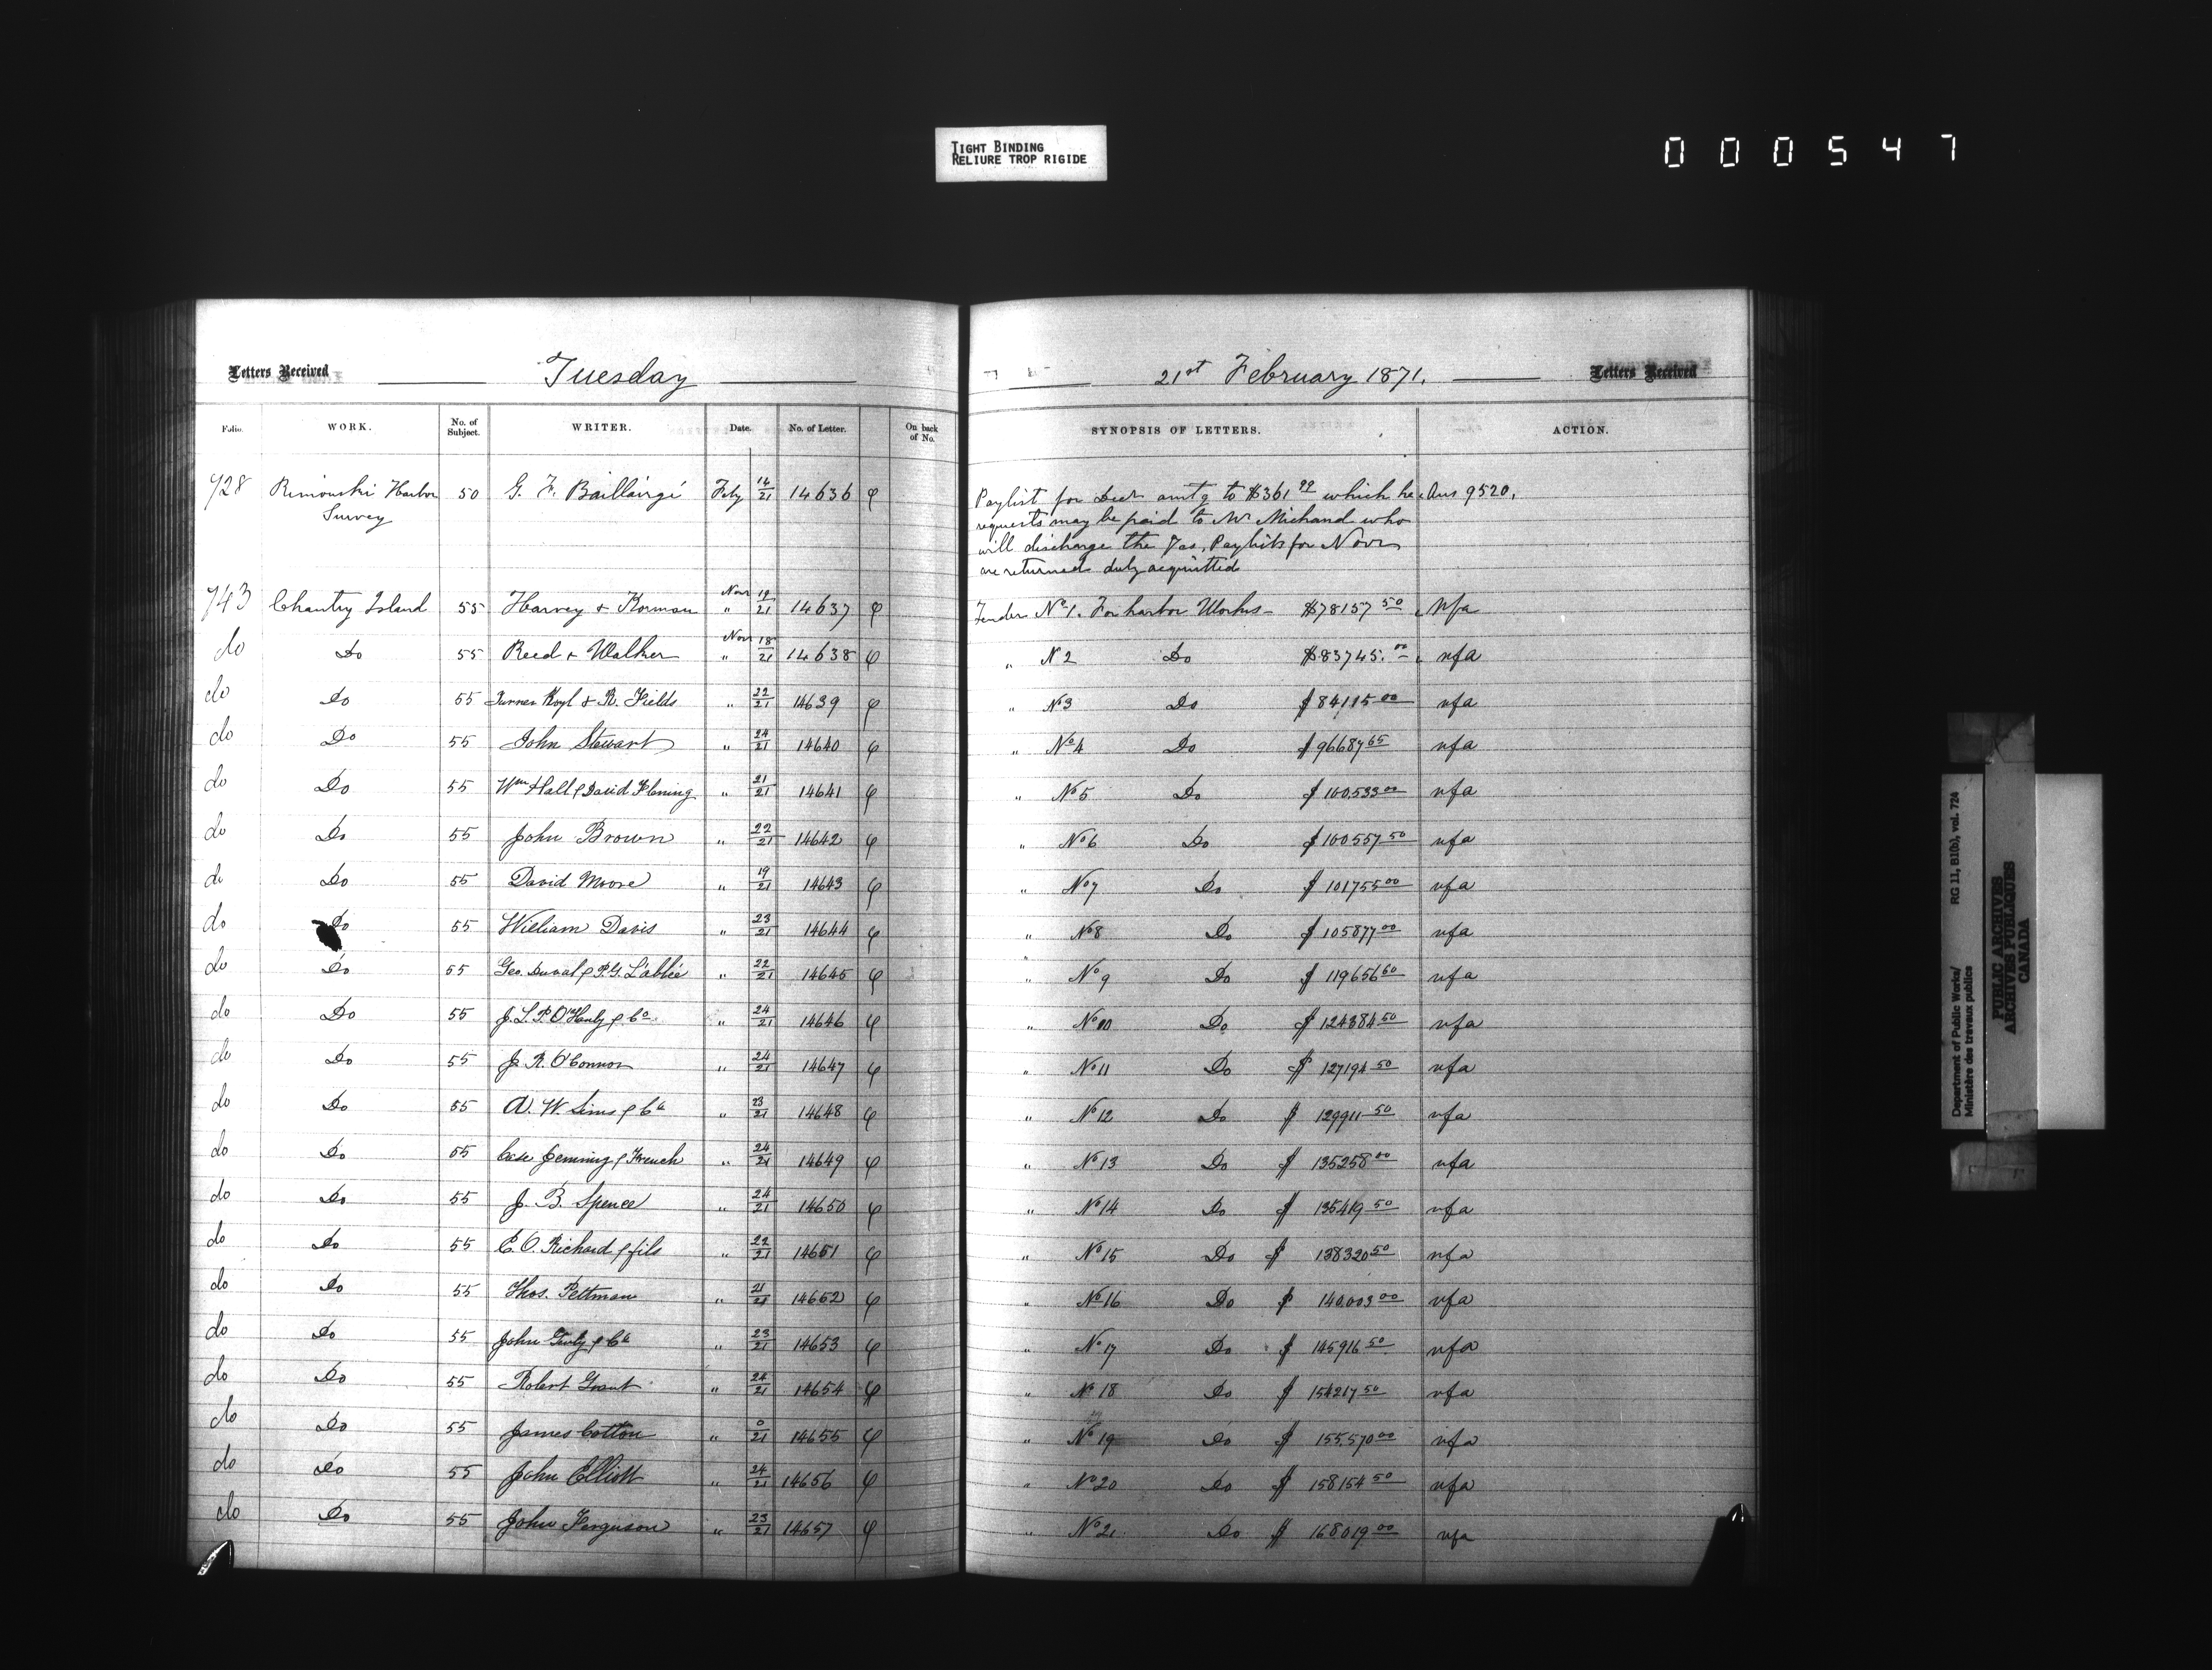 TIGHT BINDING
RELIURE TROP RIGIDE
000547
Letters Received Tuesday
Folio. WORK. No. of Subject. WRITER. Date. No. of Letter. On back of No.
728 Rimouski Harbor 50 G. F. Baillairgé Feby 14/21 14636 φ
Survey
743 Chantry Island 55 Harvey & Korman Novr 19 " 21 14637 φ
do Do 55 Reed & Walker Novr 18 " 21 14638 φ
do Do 55 Turner Koyl & R. Fields " 22/21 14639 φ
do Do 55 John Stewart " 24/21 14640 φ
do Do 55 Wm Hall & David Fleming " 21/21 14641 φ
do Do 55 John Brown " 22/21 14642 φ
do Do 55 David Moore " 19/21 14643 φ
do Do 55 William Davis " 23/21 14644 φ
do Do 55 Geo. Duval & P.G. L'abbée " 22/21 14645 φ
do Do 55 J. L. P. O'Hanly & Co. " 24/21 14646 φ
do Do 55 J. R. O'Connor " 24/21 14647 φ
do Do 55 A. W. Sims & Co " 23/21 14648 φ
do Do 55 Case Jenning & French " 24/21 14649 φ
do Do 55 J. B. Spence " 24/21 14650 φ
do Do 55 E. O. Richard & fils " 22/21 14651 φ
do Do 55 Thos. Peltman " 21/21 14652 φ
do Do 55 John & Co " 23/21 14653 φ
do Do 55 Robert Grant " 24/21 14654 φ
do Do 55 James Cotton " 0/21 14655 φ
do Do 55 John Elliott " 24/21 14656 φ
do Do 55 John Ferguson " 23/21 14657 φ
21st February 1871. Letters Received
SYNOPSIS OF LETTERS. ACTION.
Paylist for Decr amtg to $361 99 which he Ans 9520.
requests may be paid to Mr Michaud who
will discharge the Paylists for Novr
are returned duly acquitted
Tender No 1. For harbor Works $78157 50 Nfa
" N 2 Do $83745. 00 nfa
" No 3 Do $84115 00 nfa
" No 4 Do $96687 65 nfa
" No 5 Do $100,533 00 nfa
" No 6 Do $100557 50 nfa
" No 7 Do $101755 00 nfa
" No 8 Do $105877 00 nfa
" No 9 Do $119656 50 nfa
" No 10 Do $124384 50 nfa
" No 11 Do $127194 50 nfa
" No 12 Do $129911 50 nfa
" No 13 Do $135258 00 nfa
" No 14 Do $135419 50 nfa
" No 15 Do $138320 50 nfa
" No 16 Do $140.003 00 nfa
" No 17 Do $145916 50 nfa
" No 18 Do $154217 50 nfa
" No 19 Do $155,570 00 nfa
" No 20 Do $158154 50 nfa
" No 21 Do $168019 00 nfa
Department of Public Works/ RG 11, B1(b), vol. 724
Ministère des travaux publics
PUBLIC ARCHIVES
ARCHIVES PUBLIQUES
CANADA